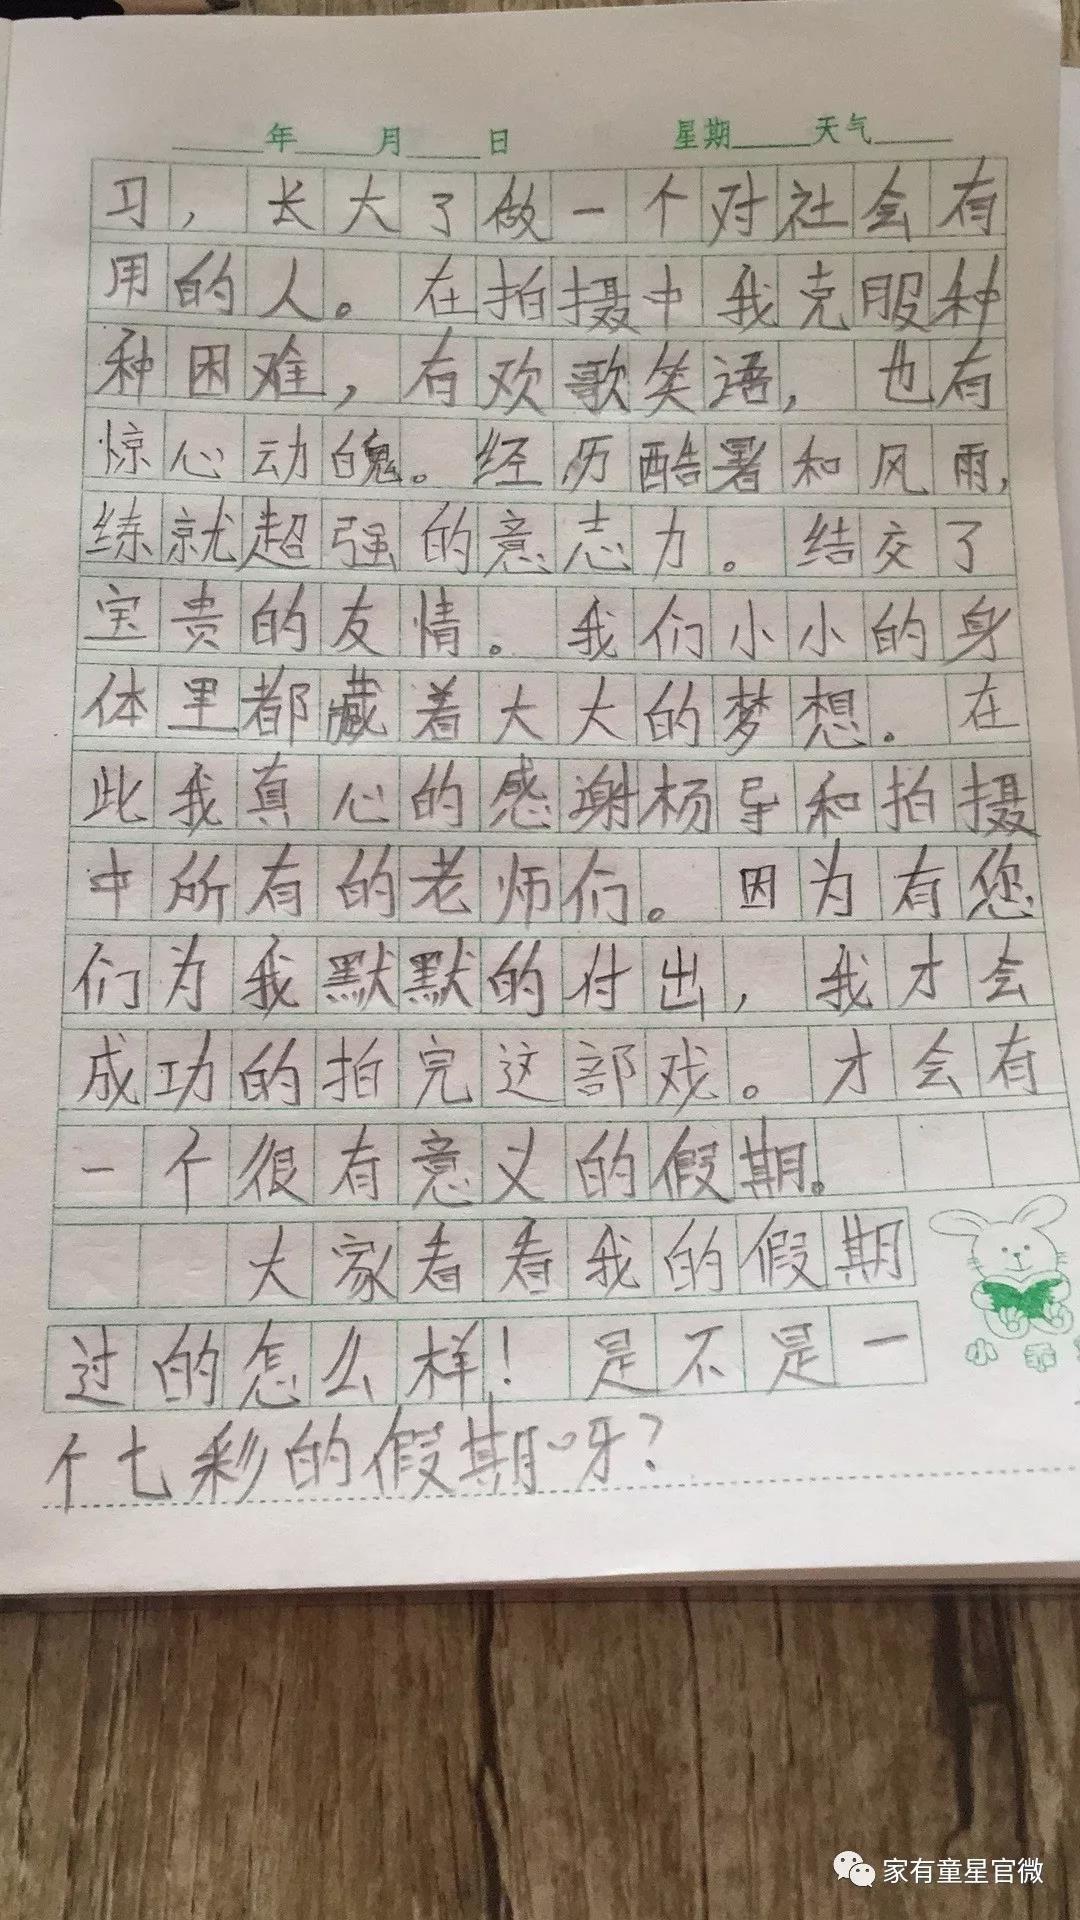 年 月 日 星期 天气
习，长大了做一个对社会有
用的人。在拍摄中我克服种
种困难，有欢歌笑语，也有
惊心动魄。经历酷署和风雨，
练就超强的意志力。结交了
宝贵的友情。我们小小的身
体里都藏着大大的梦想。在
此我真心的感谢杨导和拍摄
中所有的老师们。因为有您
们为我默默的付出，我才会
成功的拍完这部戏。才会有
一个很有意义的假期。
大家看看我的假期
过的怎么样！是不是一
个七彩的假期呀？
小乖
家有童星官微